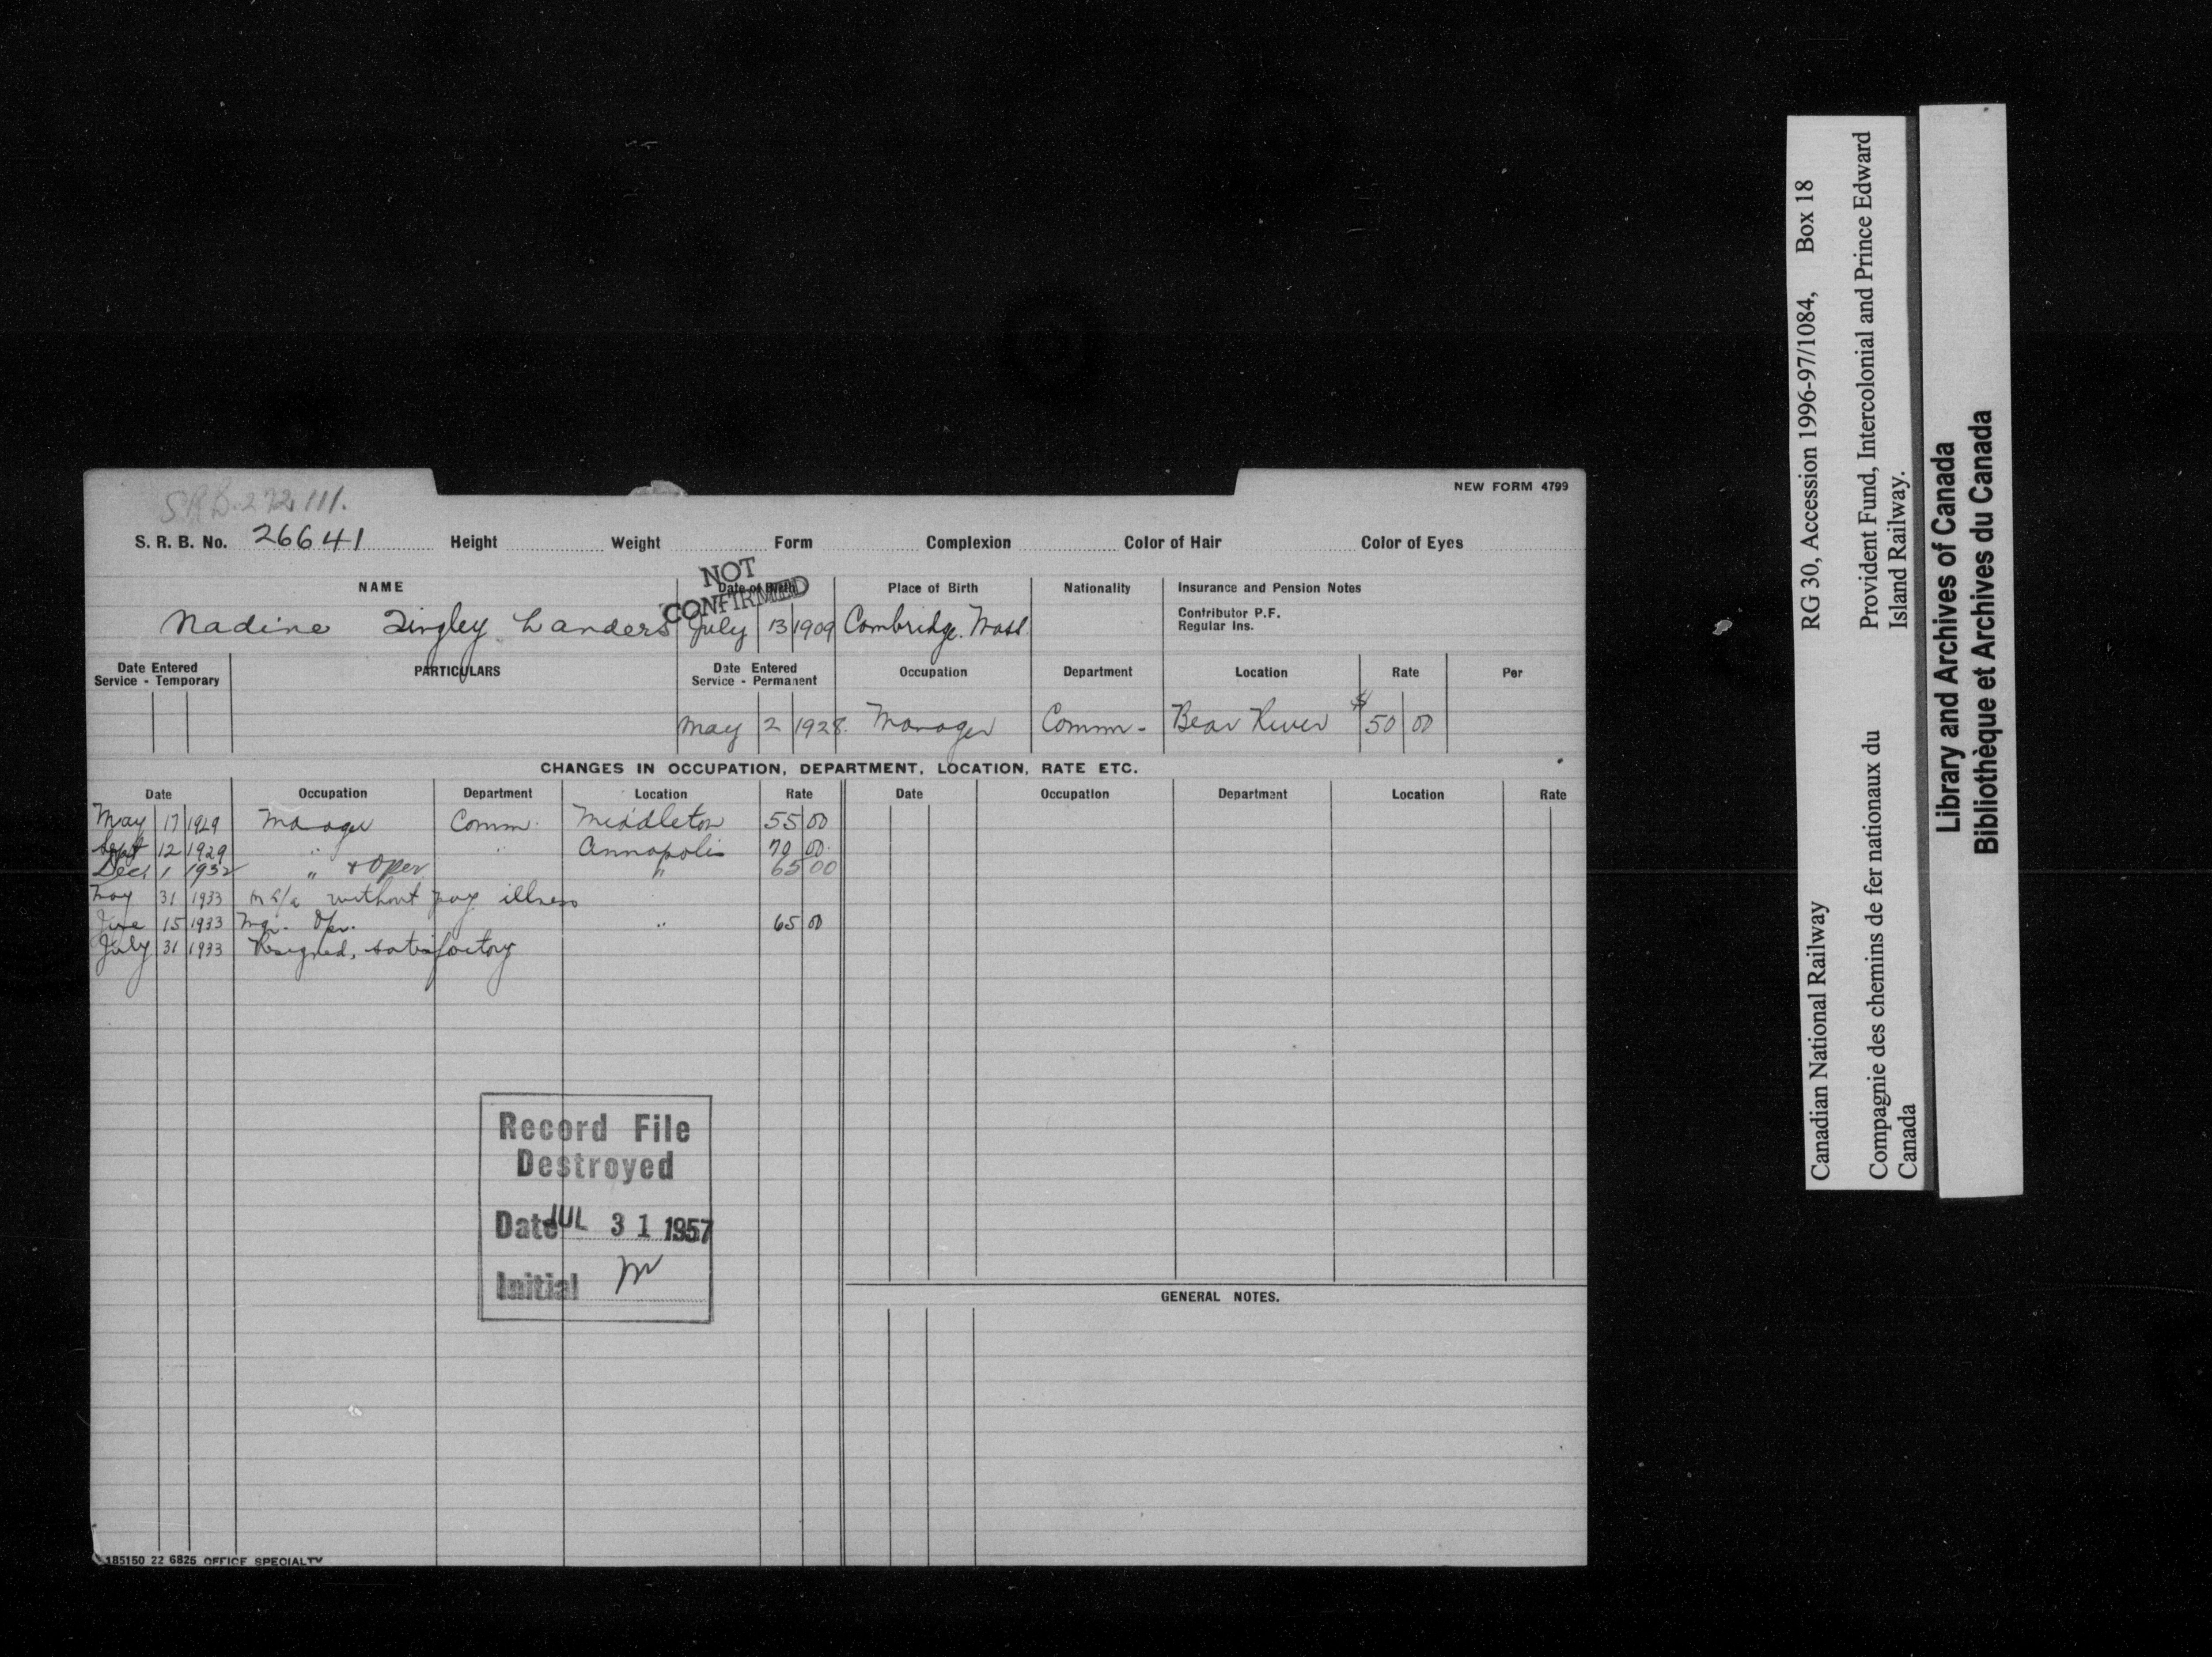 NEW FORM 4799
S.R.B. 272111.
S. R. B. No. 26641 Height Weight Form Complexion Color of Hair Color of Eyes
NOT CONFIRMED
NAME Date of Birth Place of Birth Nationality Insurance and Pension Notes
Contributor P.F.
Regular Ins.
Nadine Tingley Landers July 13 1909 Cambridge. Mass.
Date Entered Service - Temporary PARTICULARS Date Entered Service - Permanent Occupation Department Location Rate Per
May 2 1928. Manager Comm- Bear River $ 50 00
CHANGES IN OCCUPATION, DEPARTMENT, LOCATION, RATE ETC.
Date Occupation Department Location Rate Date Occupation Department Location Rate
May 17 1929 Manager Comm. Middleton 55 00
Sept 12 1929 " " Annapolis 70 00.
Dec 1 1932 " & Oper. " 65 00
May 31 1933 without pay illness
June 15 1933 Mgr. Opr. " 65 00
July 31 1933 Resigned, satisfactory
Record File
Destroyed
Date JUL 31 1957
Initial
GENERAL NOTES.
185150 22 6825 OFFICE SPECIALTY
Canadian National Railway RG 30, Accession 1996-97/1084, Box 18
Compagnie des chemins de fer nationaux du Canada
Provident Fund, Intercolonial and Prince Edward Island Railway.
Library and Archives of Canada
Bibliothèque et Archives du Canada